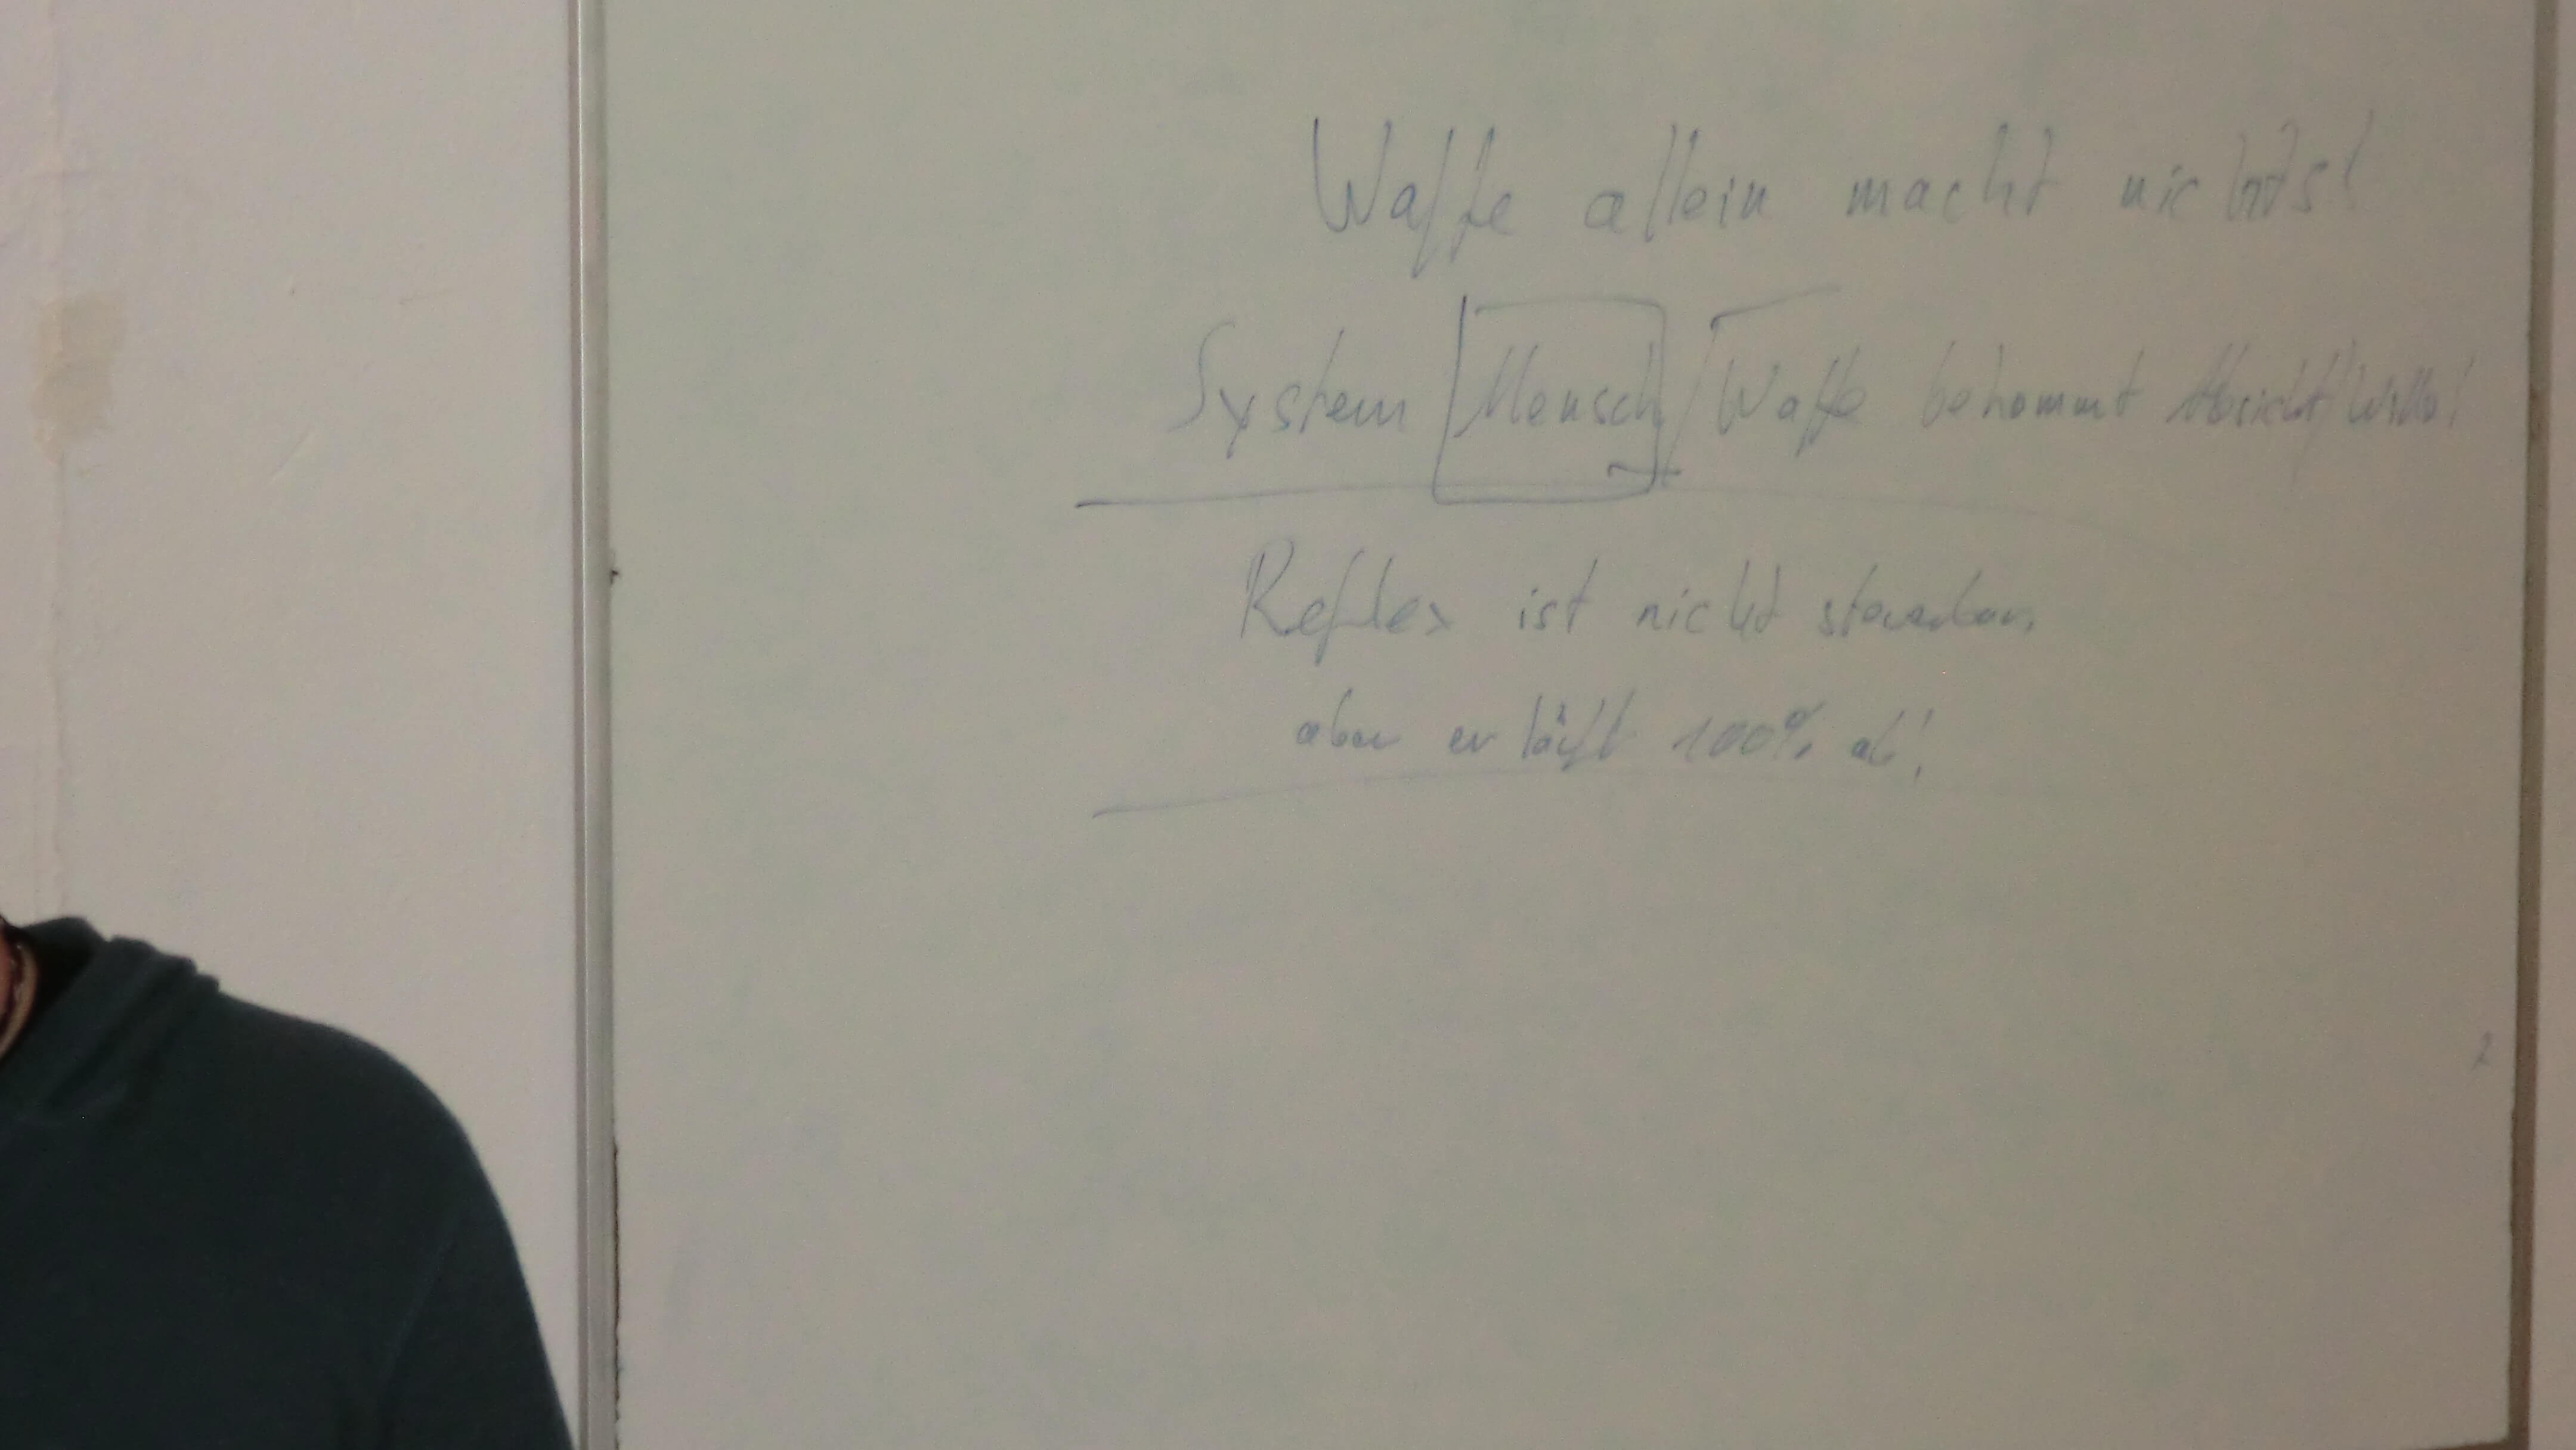 Waffe allein macht nichts!
System Mensch / Waffe bekommt Absicht/Wille!
Reflex ist nicht steuerbar,
aber er läuft 100% ab!
2